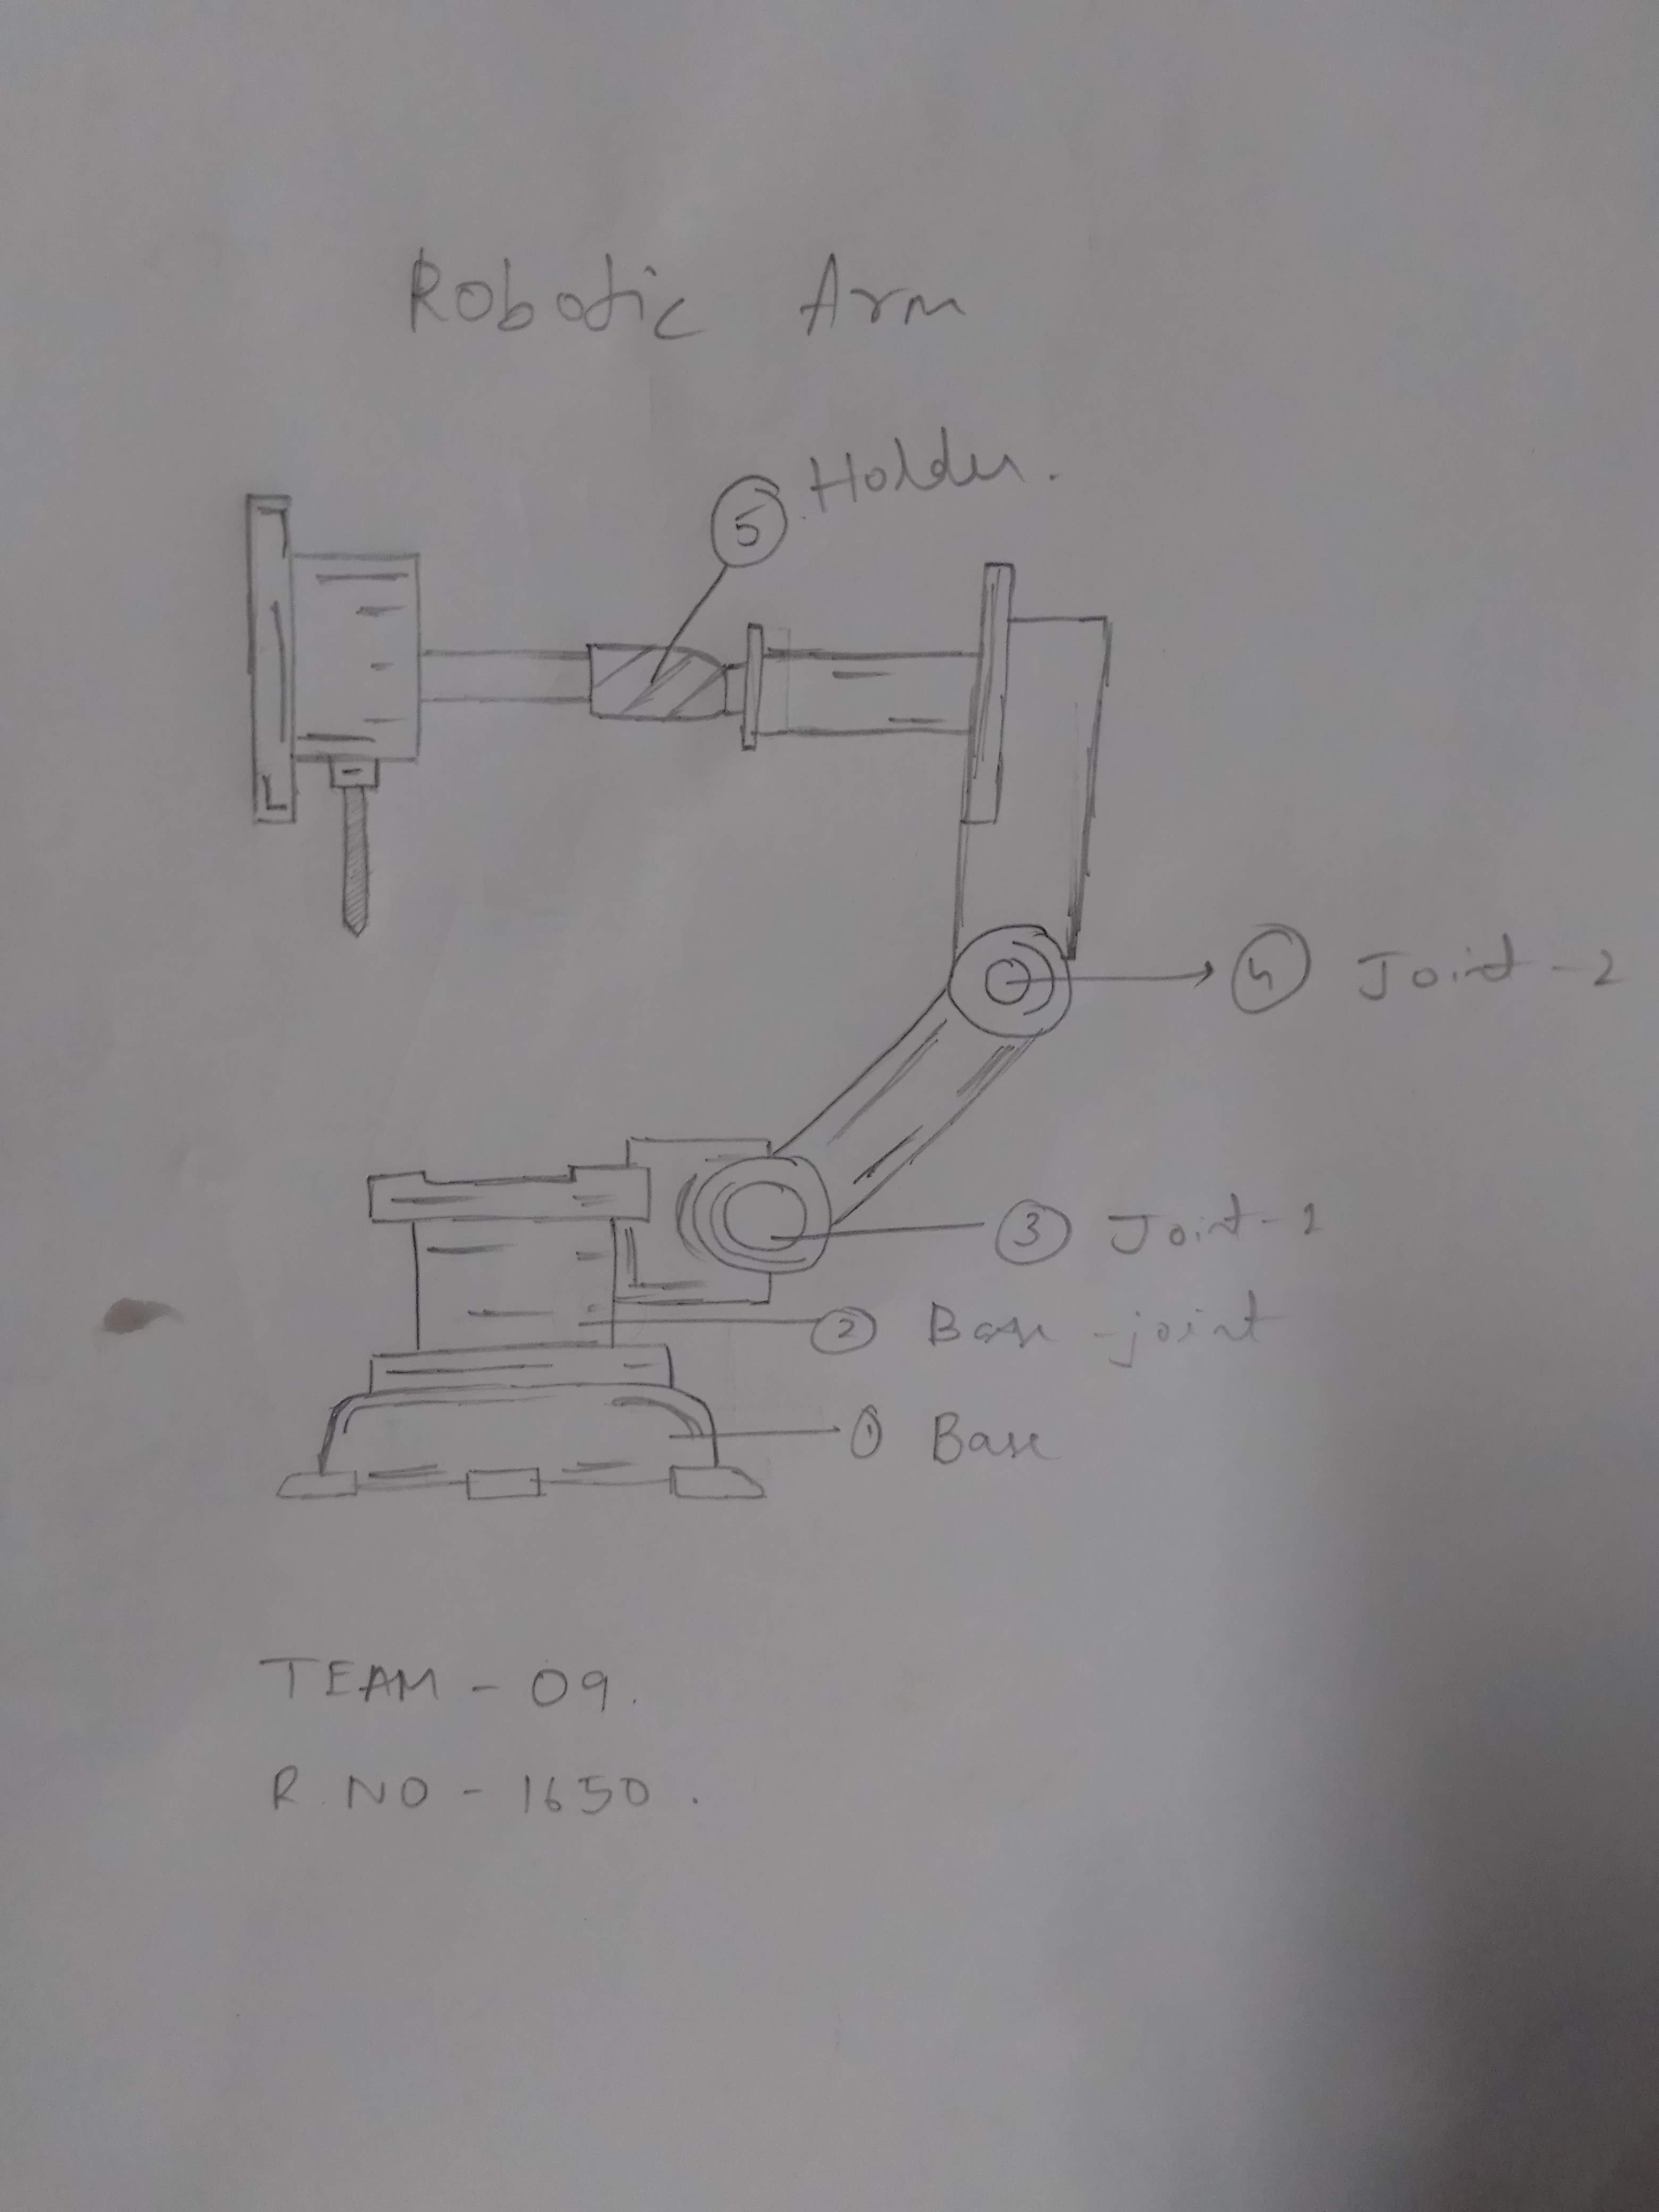 Robotic Arm
5 Holder.
4 Joint-2
3 Joint-1
2 Base-joint
1 Base
TEAM - 09.
R.NO - 1650.